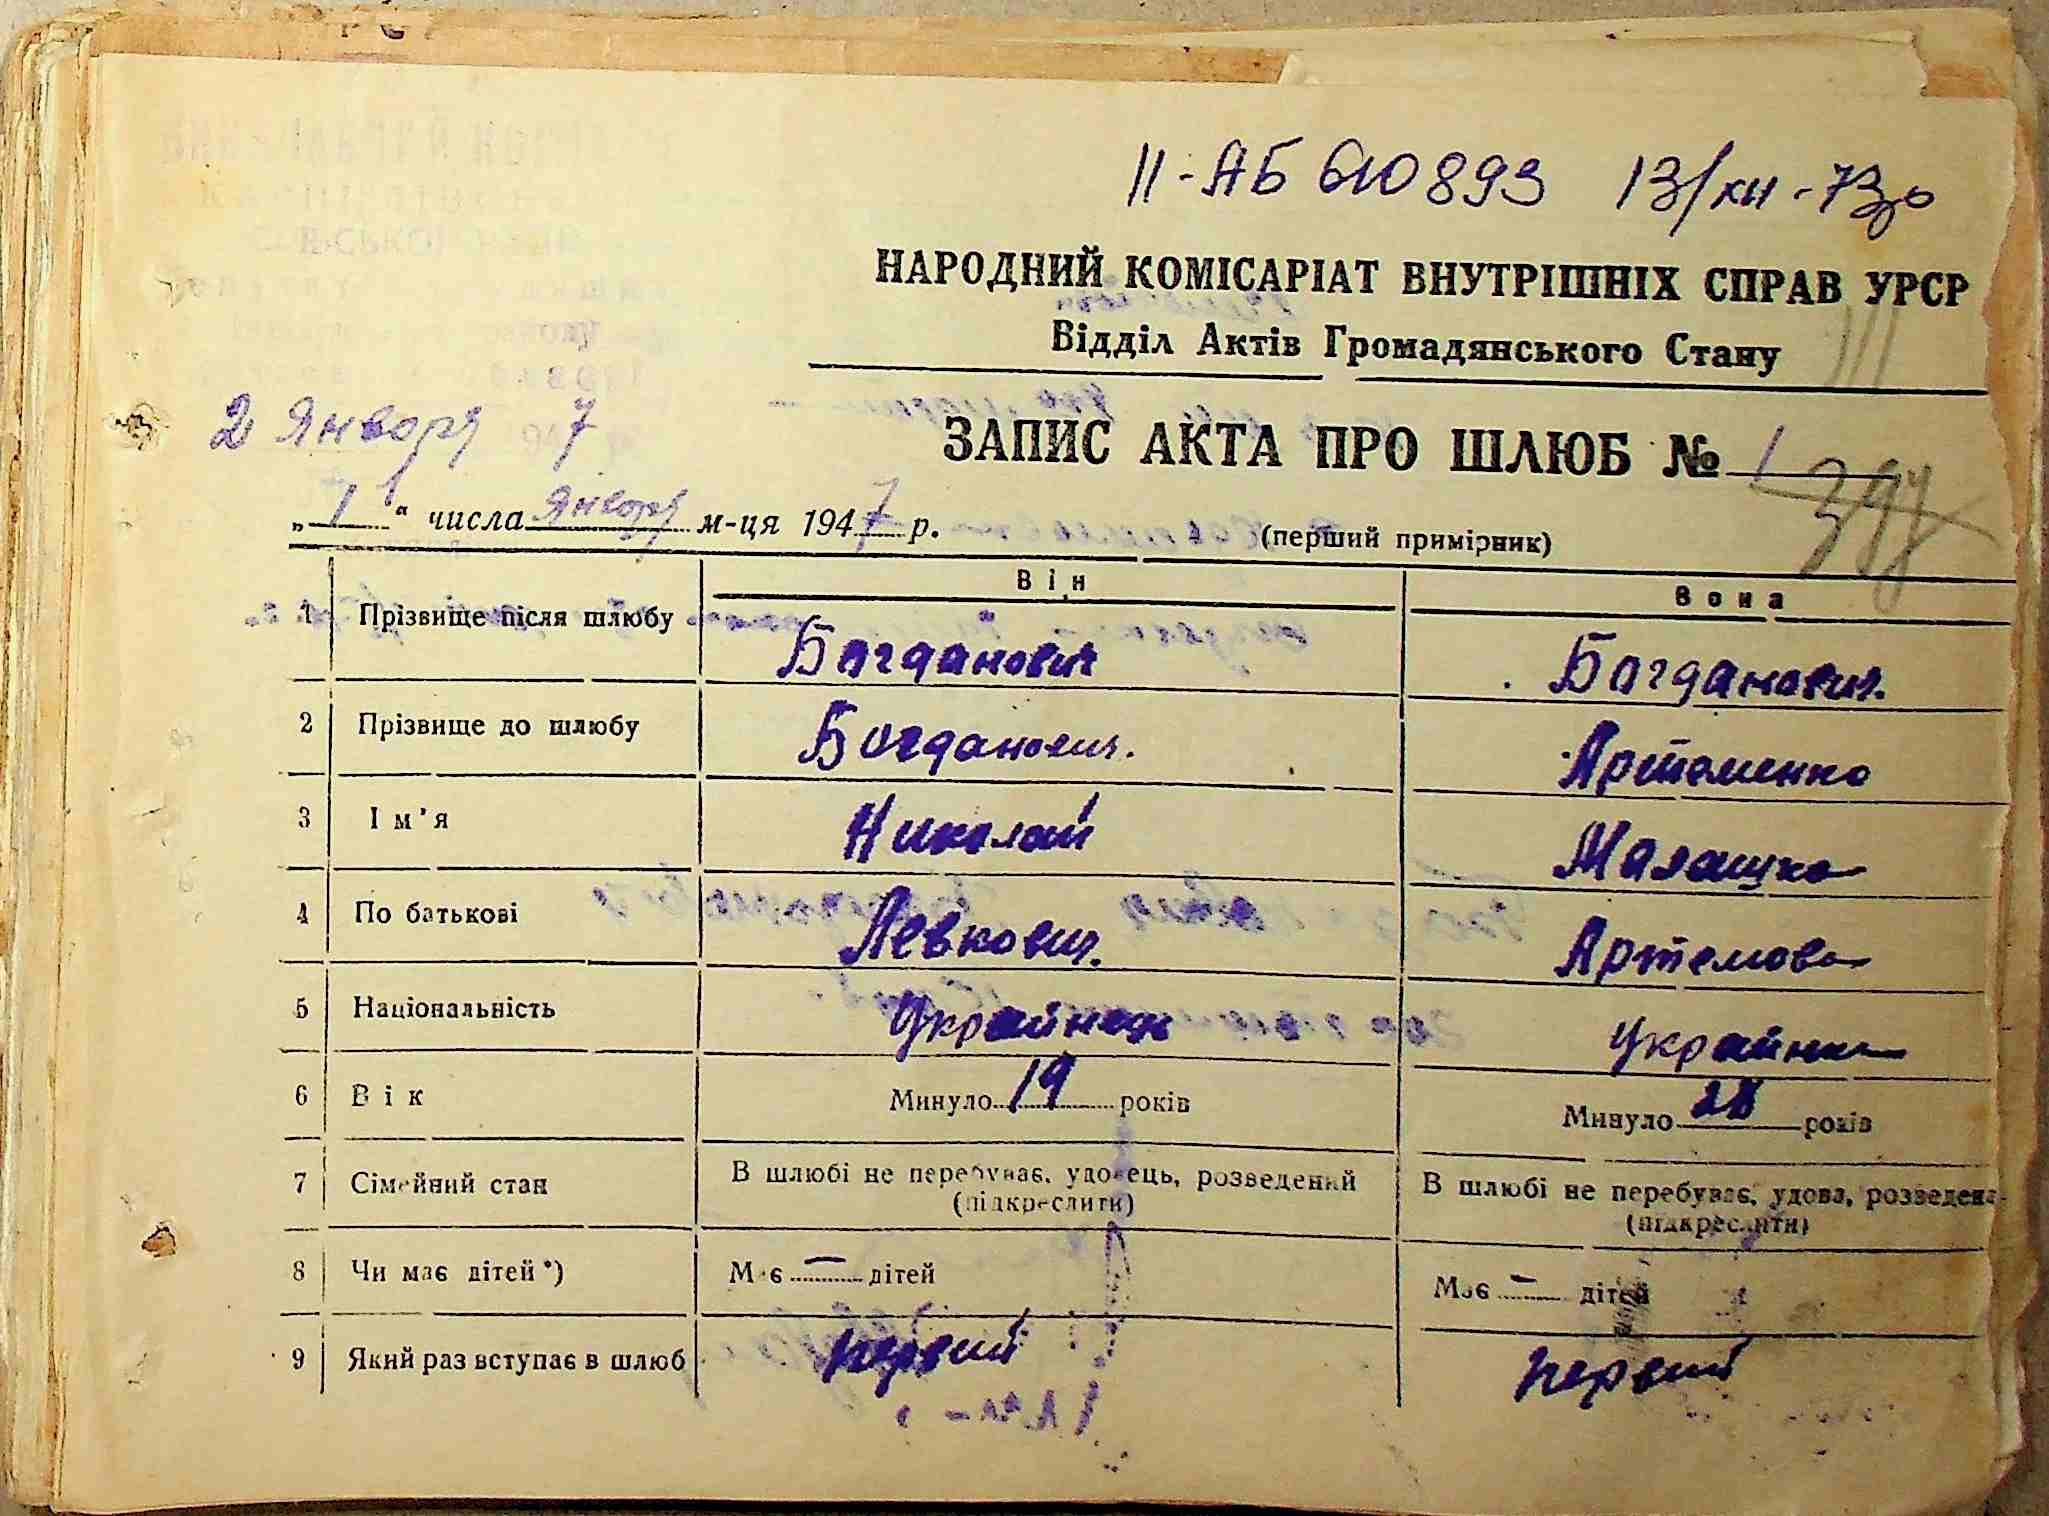 II-АБ 610893 13/XII-73р
НАРОДНИЙ КОМІСАРІАТ ВНУТРІШНІХ СПРАВ УРСР
Відділ Актів Громадянського Стану
2 Января 7
ЗАПИС АКТА ПРО ШЛЮБ № 1
„ 1 “ числа Января м-ця 1947 р. (перший примірник)
Він Вона
1 Прізвище після шлюбу Богданович Богданович.
2 Прізвище до шлюбу Богданович. Артеменко
3 Ім'я Николай Малашка
4 По батькові Левкович. Артемовна
5 Національність Украйнец украйнка
6 Вік Минуло 19 років Минуло 28 років
7 Сімейний стан В шлюбі не перебуває, удовець, розведений В шлюбі не перебуває, удова, розведена
(підкреслити) (підкреслити)
8 Чи має дітей*) Має — дітей Має — дітей
9 Який раз вступає в шлюб первий первий